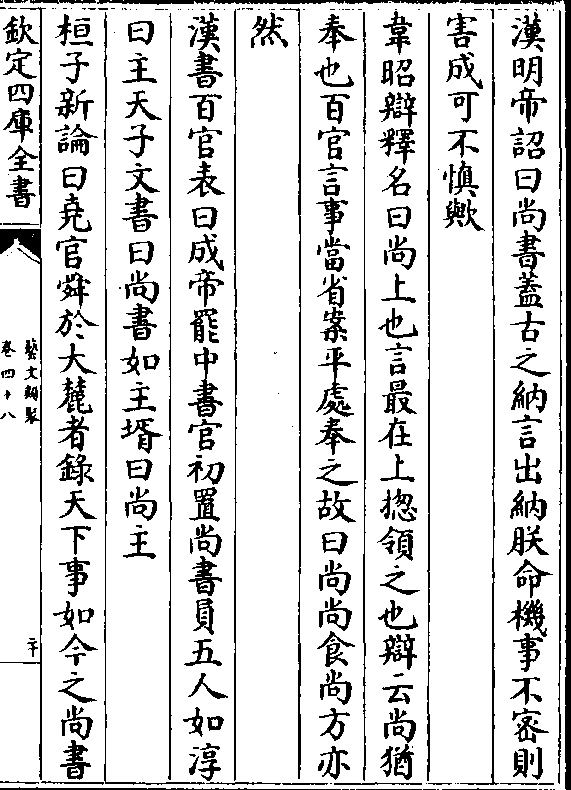 漢明帝詔曰尚書蓋古之納言出納朕命機事不密則
害成可不慎歟
韋昭辯釋名曰尚上也言最在上揔領之也辯云尚猶
奉也百官言事當省案平處奉之故曰尚尚食尚方亦
然
漢書百官表曰成帝罷中書官初置尚書員五人如淳
曰主天子文書曰尚書如主壻曰尚主
桓子新論曰堯官舜於大麓者錄天下事如今之尚書
欽定四庫全書
藝文類聚
卷四十八
二十